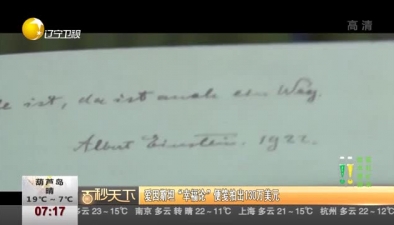 辽宁卫视
高清
ist, da ist auch ein Weg.
Albert Einstein, 1922.
百秒天下
爱因斯坦“幸福论”便笺拍出130万美元
葫芦岛
晴
19℃~7℃
07:17
多云 23~15℃ 南京 多云 转 晴 22~11℃ 上海 多云 21~15℃ 杭州 多云 22~12℃